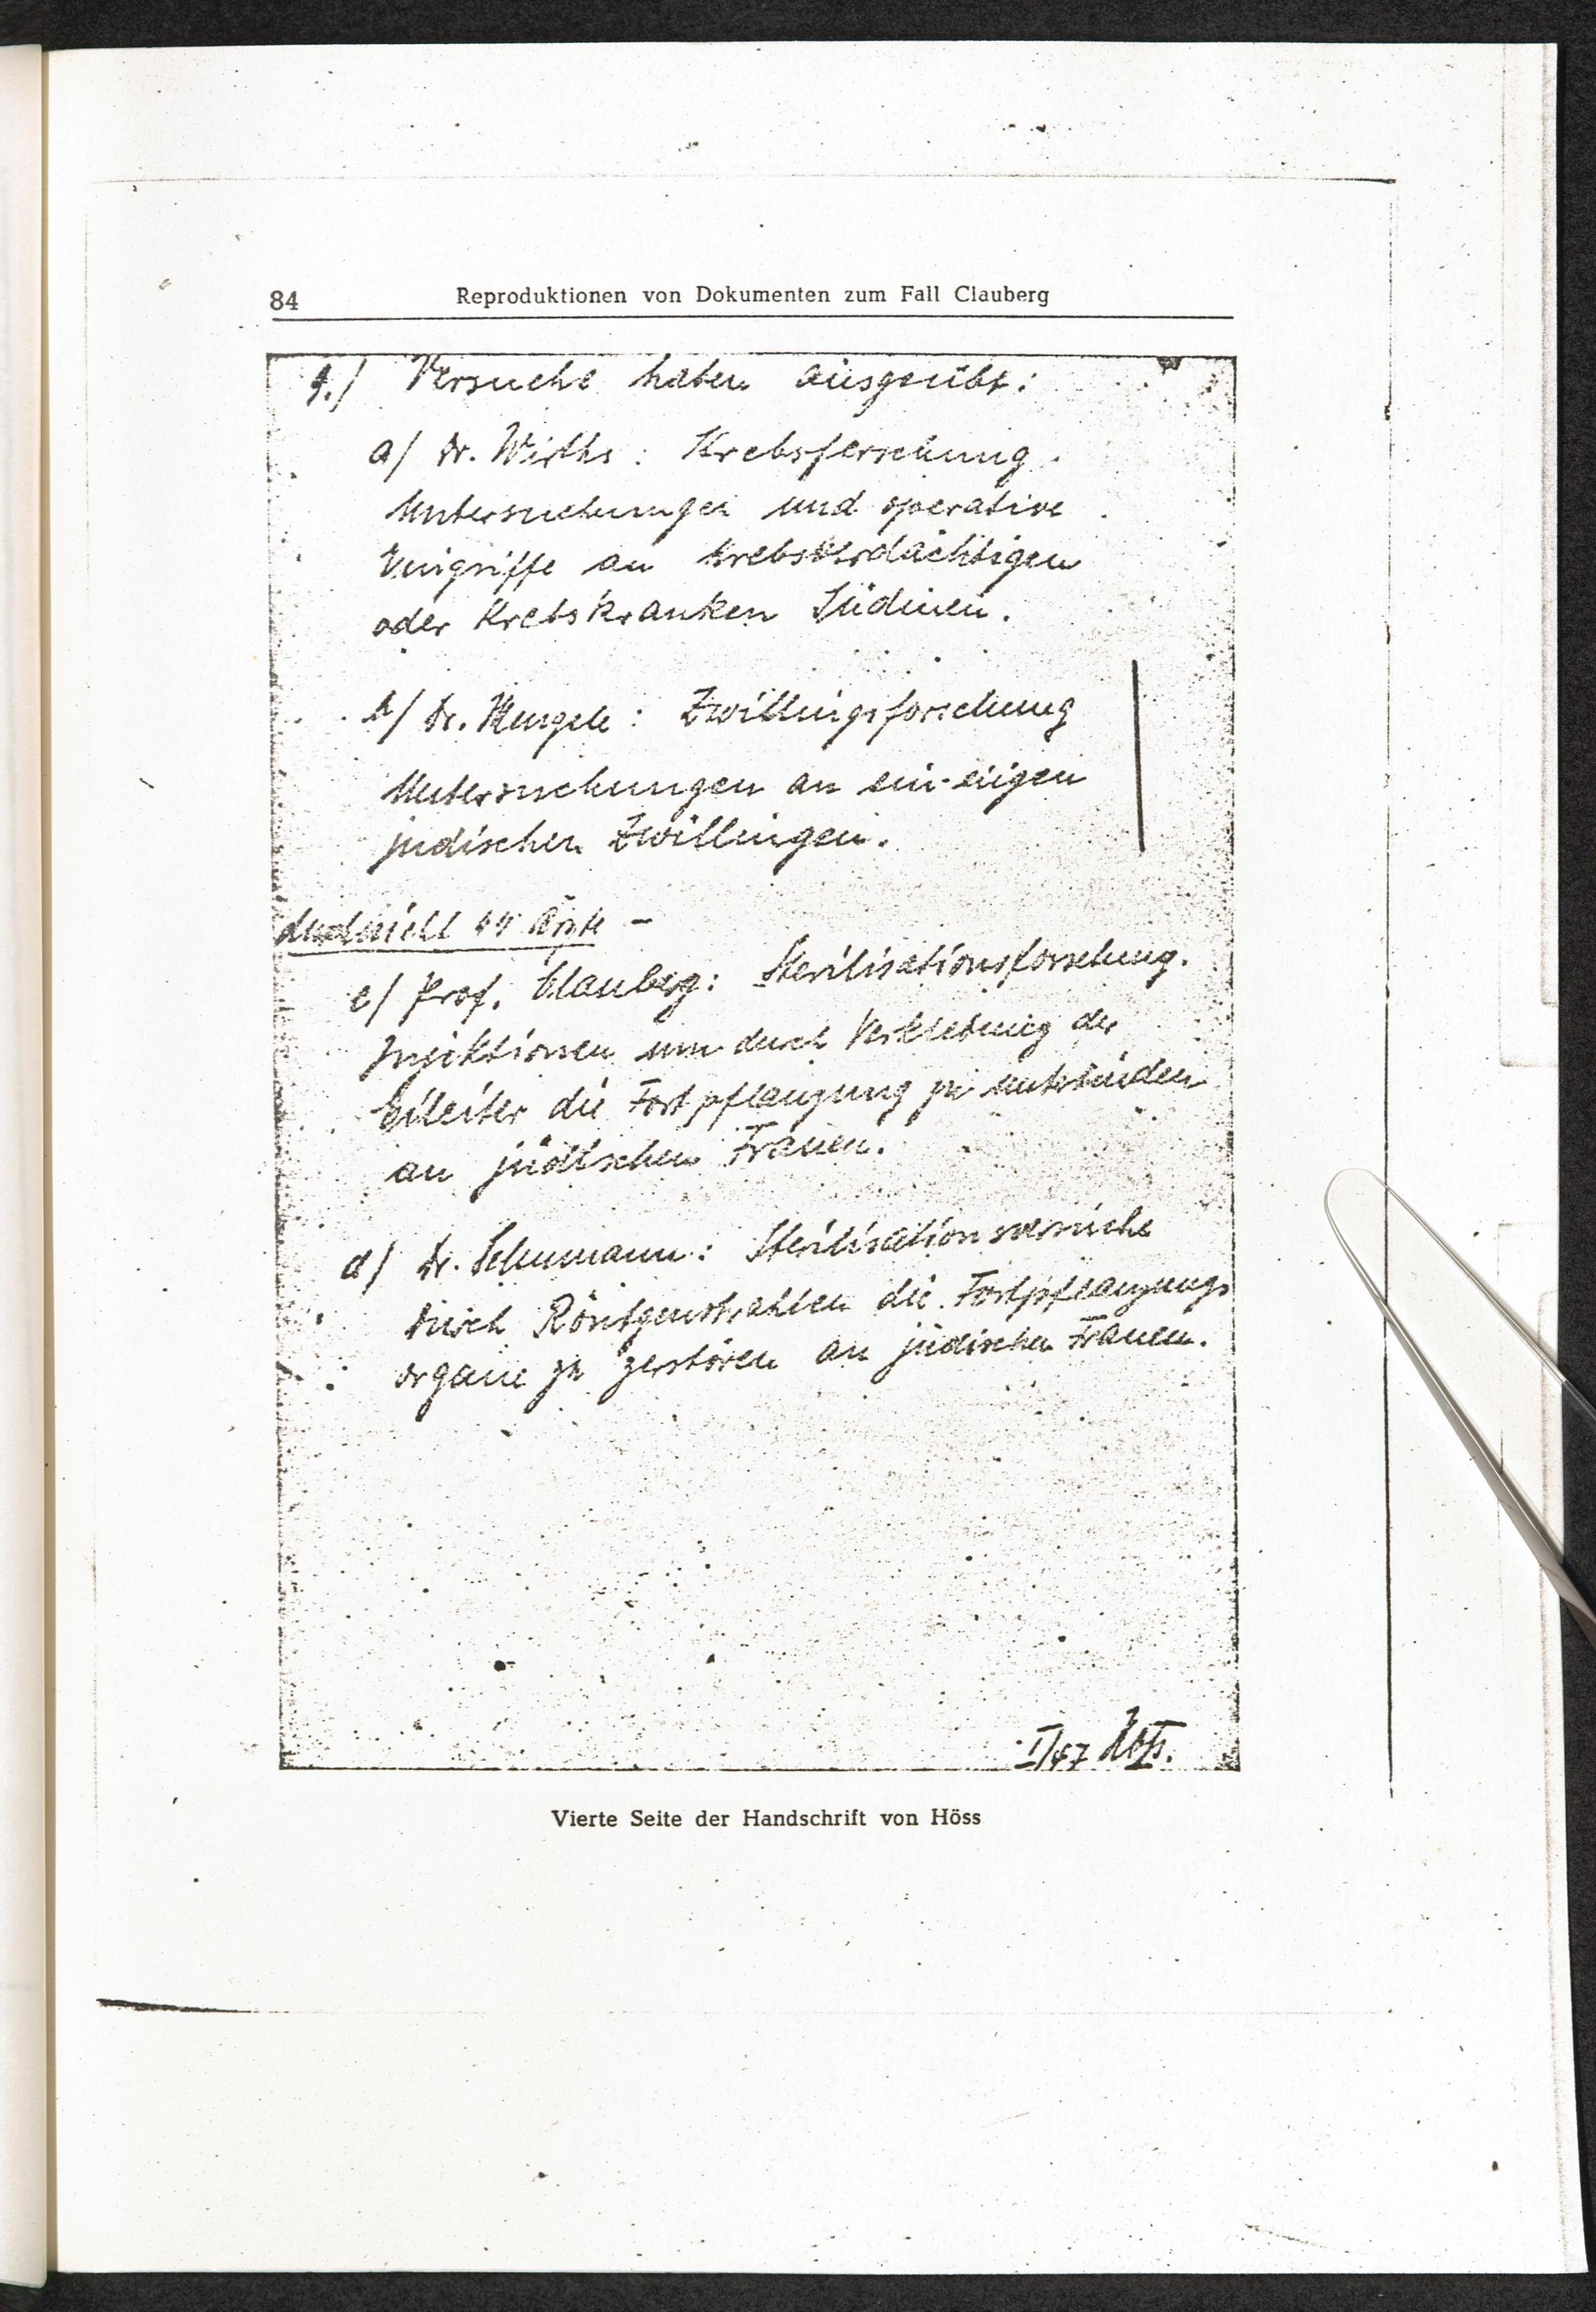 84
Reproduktionen von Dokumenten zum Fall Clauberg
Versuche haben ausgeübt:
a/ Dr. Wirths: Krebsforschung.
Untersuchungen und operative
Eingriffe an krebsverdächtigen
oder krebskranken Jüdinen.
b/ Dr. Mengele: Zwillingsforschung
Untersuchungen an ein-eiigen
jüdischen Zwillingen.
Ärzte –
c/ Prof. Clauberg: Sterilisationsforschung.
Injektionen um durch Verklebung der
Eileiter die Fortpflanzung zu unterbinden
an jüdischen Frauen.
d/ Dr. Schumann: Sterilisationsversuche
durch Röntgenstrahlen die Fortpflanzungs
organe zu zerstören an jüdischen Frauen.
I/47 Höß.
Vierte Seite der Handschrift von Höss